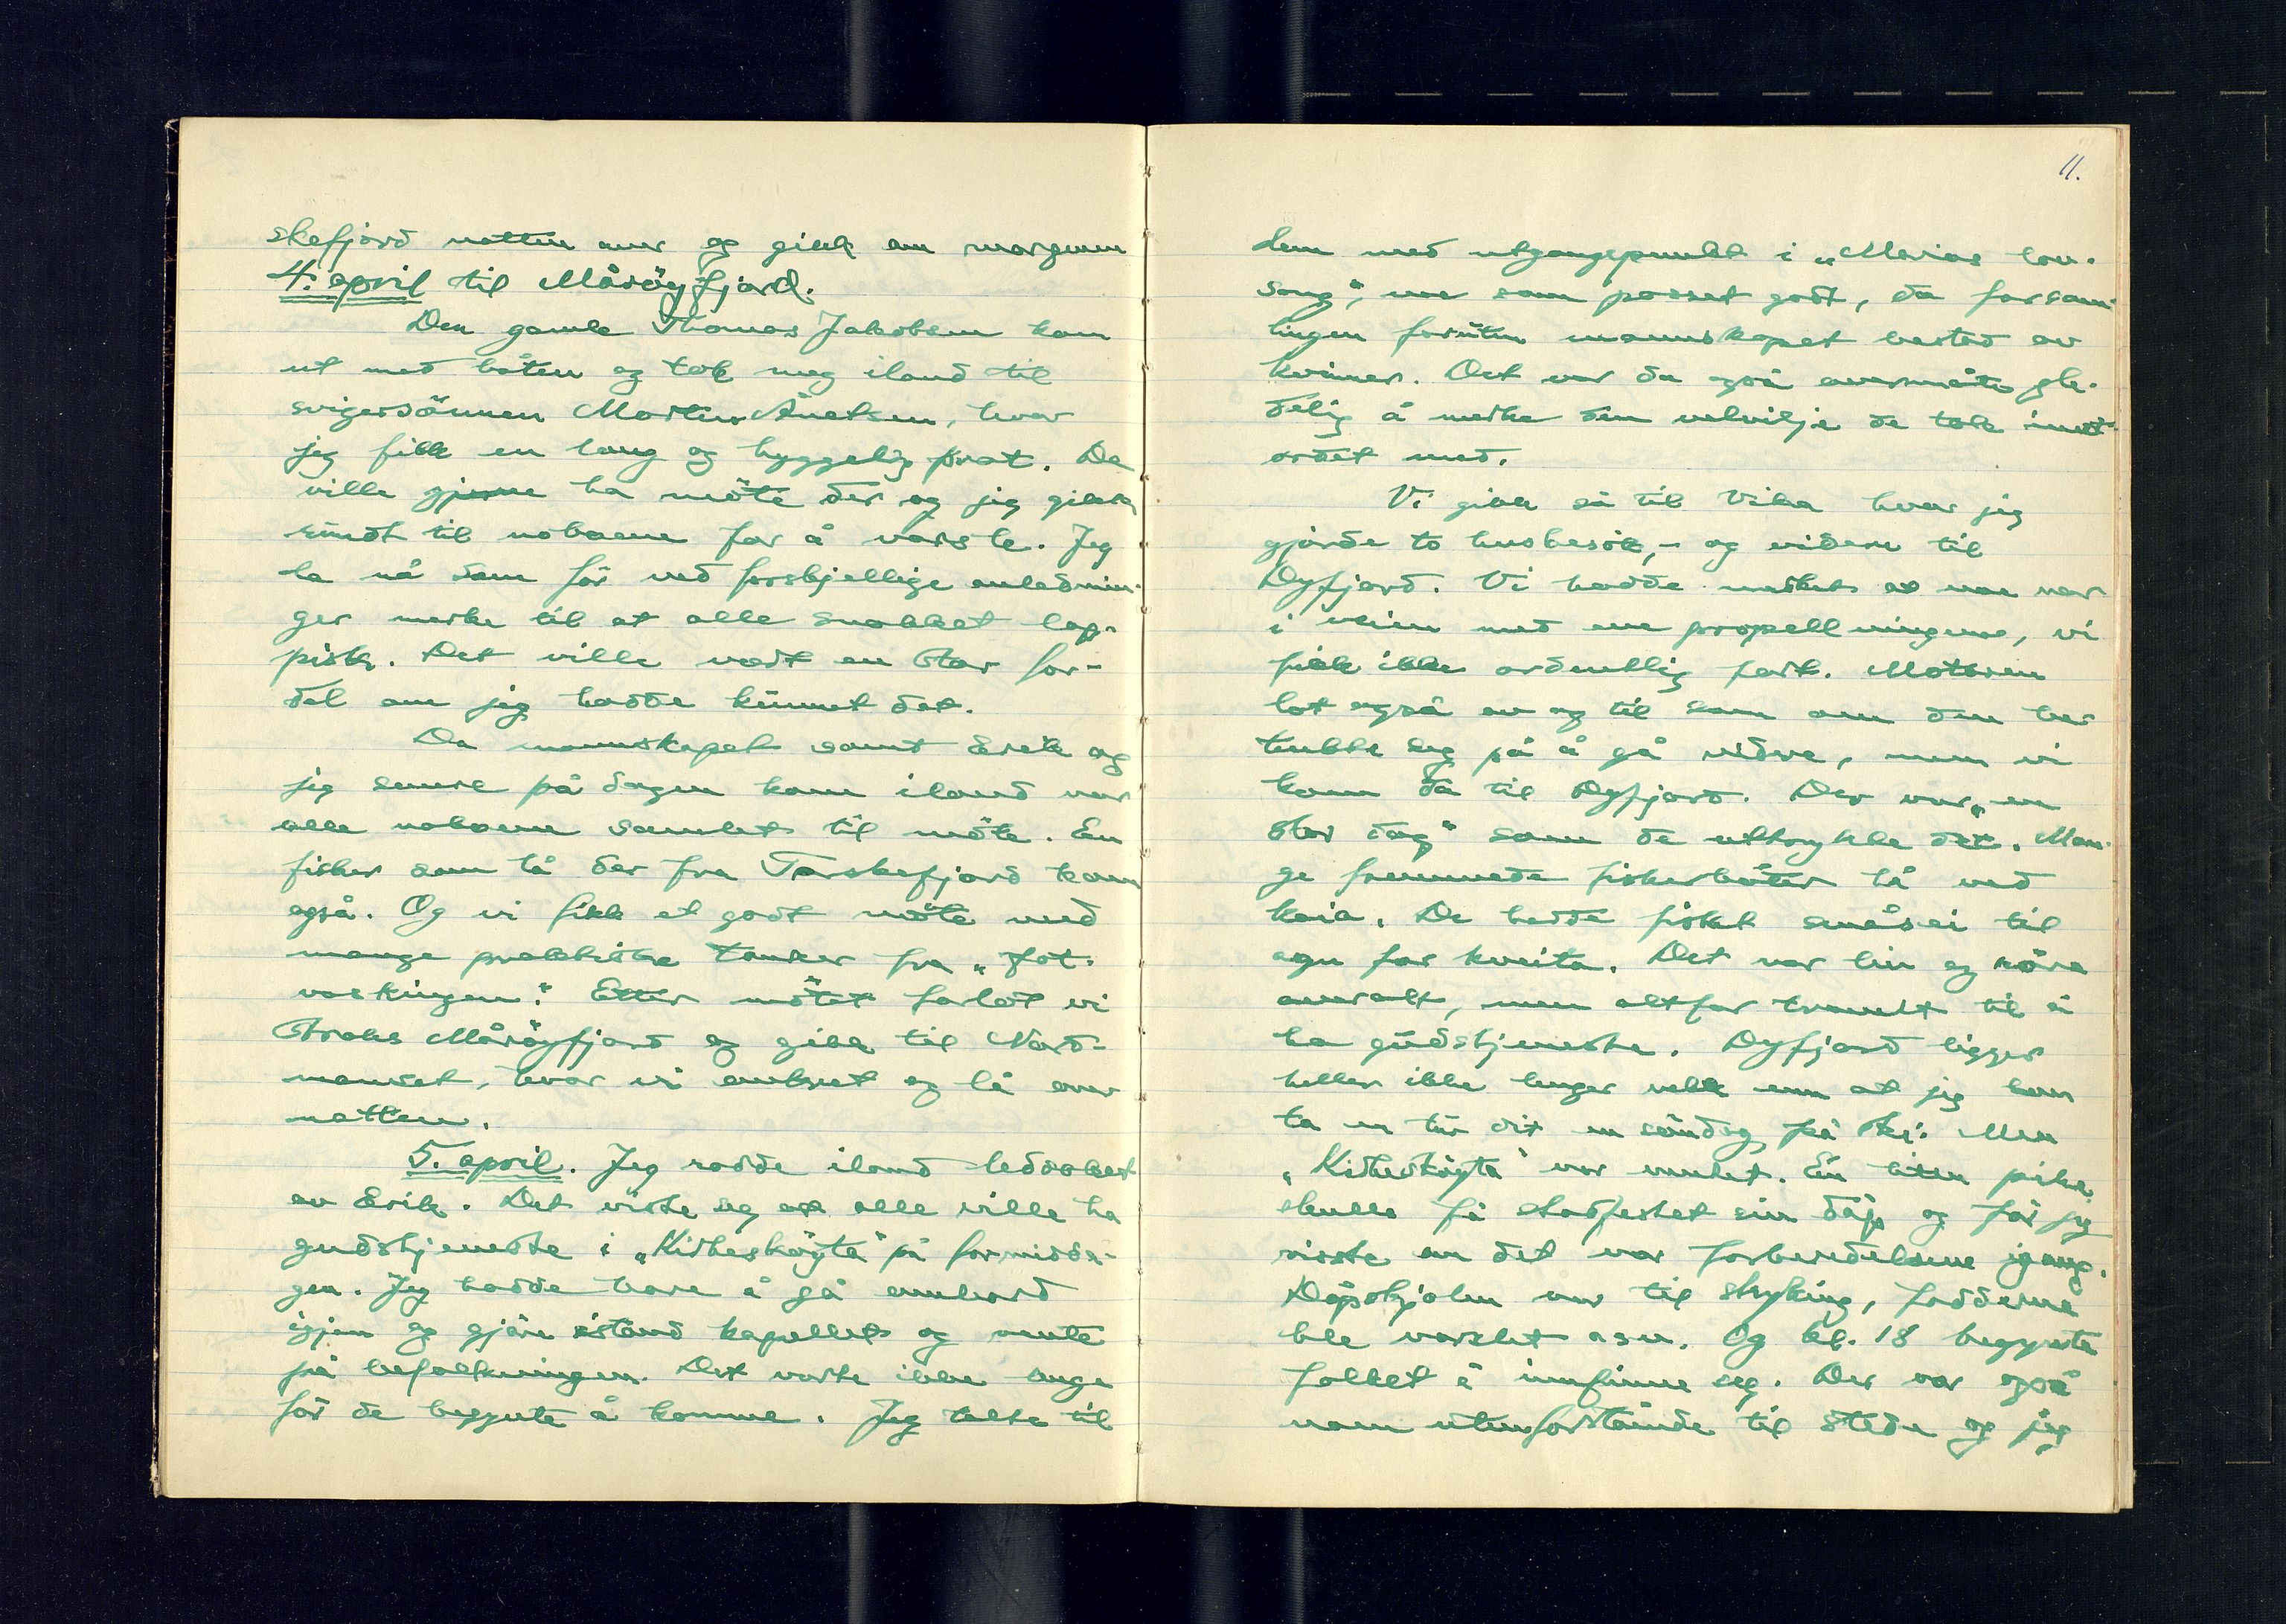 skefjord natten over og gikk om morgenen
4. april til Måröyfjord.
Den gamle Thomas Jakobsen kom
ut med båten og tok meg iland til
svigersönnen Morten Anetsen, hvor
jeg fikk en lang og hyggelig prat. De
ville gjerne ha möte der og jeg gikk
rundt til naboene for å varsle. Jeg
la nå som för ved forskjellige anlednin-
ger merke til at alle snakket lap-
pisk. Det ville vært en stor for-
del om jeg hadde kunnet det.
Da mannskapet samt Erik og
jeg senere på dagen kom iland var
alle naboene samlet til möte. En
fisker som lå der fra Torskefjord kom
også. Og vi fikk et godt möte med
mange praktiske tanker fra „Fot-
vaskingen". Etter mötet forlot vi
straks Måröyfjord og gikk til Nord-
mannset, hvor vi ankret og lå over
natten.
5. april. Jeg rodde iland ledsaket
av Erik. Det viste seg at alle ville ha
gudstjeneste i „Kirkesköyta" på formidda-
gen. Jeg hadde bare å gå ombord
igjen og gjöre istand kapellet og vente
på befolkningen. Det varte ikke lenge
för de begynte å komme. Jeg talte til
11.
dem med utgangspunkt i „Marias lov-
sang", noe som passet godt, da forsam-
lingen foruten mannskapet bestod av
kvinner. Det var da også overmåte gle-
delig å merke den velvilje de tok imot
ordet med.
Vi gikk så til Vika hvor jeg
gjorde to husbesök, - og videre til
Dyfjord. Vi hadde merket at noe var
i veien med ene propellvingene, vi
fikk ikke ordentlig fart. Motoren
lot også av og til som om den be-
tenkte seg på å gå videre, men vi
kom da til Dyfjord. Der var „en
stor dag" som de uttrykte det. Man-
ge fremmede fiskerbåter lå ved
kaia. De hadde fisket småsei til
agn for kveita. Det var liv og röre
overalt, men altfor travelt til å
ha gudstjeneste. Dyfjord ligger
heller ikke lenger vekk enn at jeg kan
ta en tur dit en söndag på ski. Men
„Kirkesköyta" var ventet. En liten pike
skulle få stadfestet sin dåp og för jeg
visste om det var forberedelsene igang.
Dåpskjolen var til stryking, fadderne
ble varslet osv. Og kl. 18 begynte
folket å innfinne seg. Der var også
noen utenforstående til stede og jeg